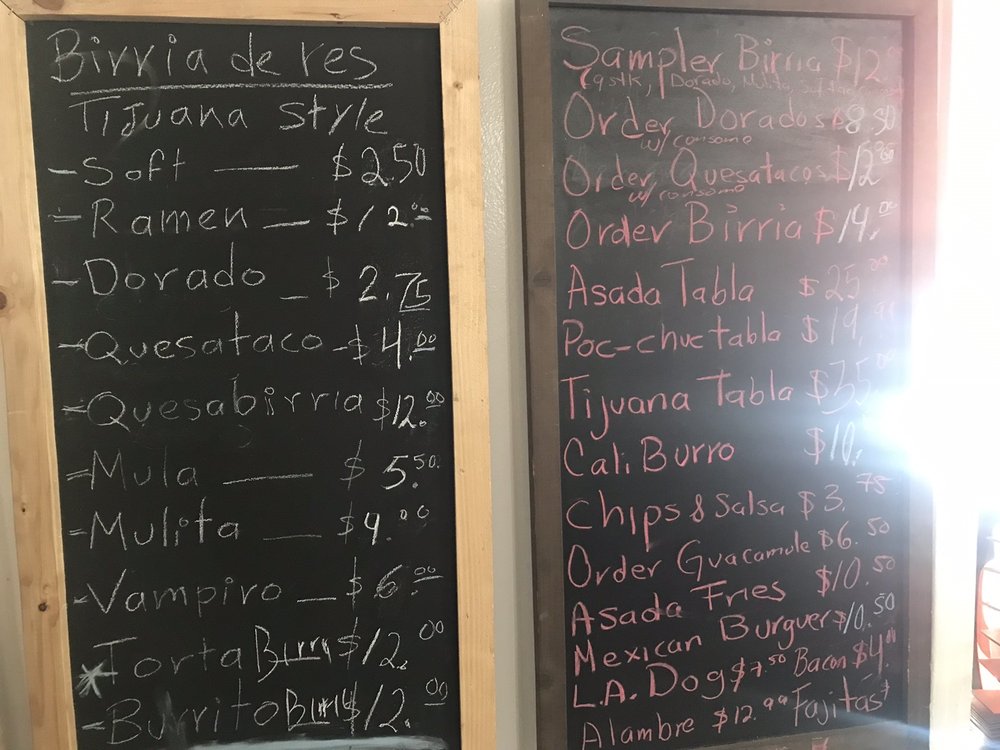 Birria de res
Tijuana Style
- Soft — $2.50
- Ramen — $12.00
- Dorado — $2.75
- Quesataco - $4.00
- Quesabirria $12.00
- Mula — $5.50
- Mulita — $4.00
- Vampiro — $6.00
* Torta Birria $12.00
- Burrito Birria $12.00
Sampler Birria $12
Dorado, Mulita,
Order Dorados $8.50
w/ consome
Order Quesatacos $12
w/ consome
Order Birria $14.00
Asada Tabla $25.00
Poc-chuc tabla $19.99
Tijuana Tabla $35.00
Cali Burro $10.
Chips & Salsa $3.75
Order Guacamole $6.50
Asada Fries $10.50
Mexican Burguer $10.50
L.A. Dog $7.50 Bacon $4.
Alambre $12.99 Fajitas